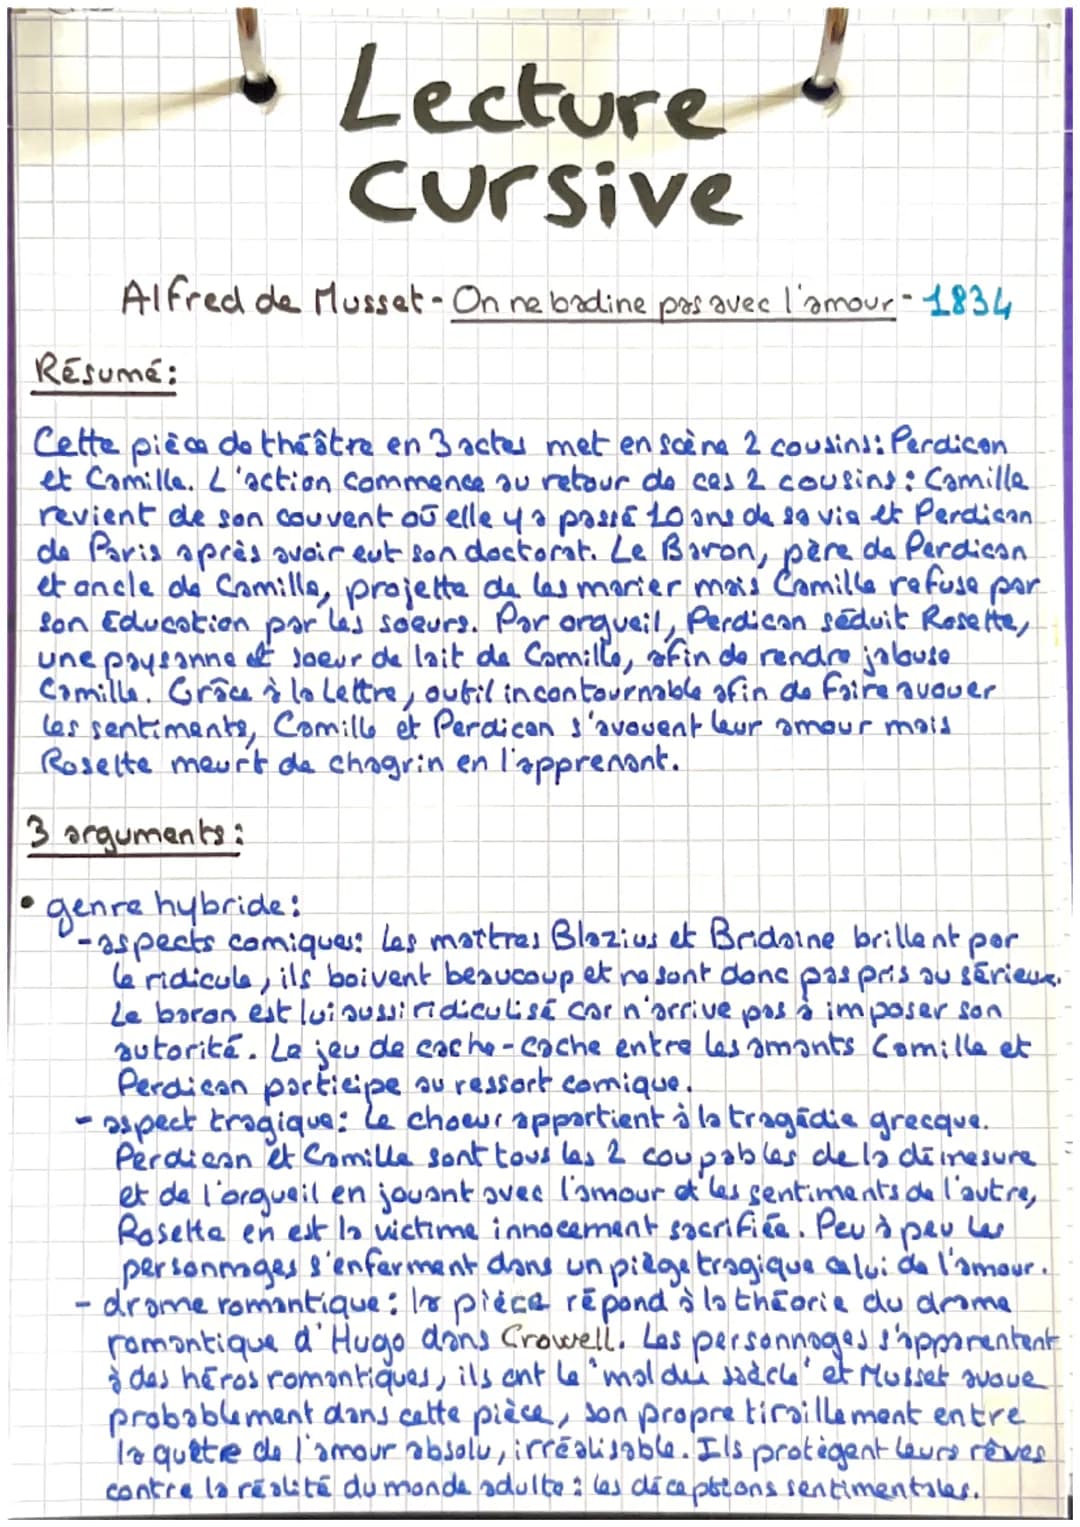 Lecture
cursive
Alfred de Musset - On ne badine pas avec l'amour - 1834
Résumé:
Cette pièce de théâtre en 3 actes met en scène 2 cousins: Perdican
et Camille. L'action commence au retour de ces 2 cousins: Camille
revient de son couvent où elle y a passé 10 ans de sa vie et Perdican
de Paris après avoir eut son doctorat. Le Baron, père de Perdican
et oncle de Camille, projette de les marier mais Camille refuse par
son Education par les soeurs. Par orgueil, Perdican séduit Rosette,
une paysanne et soeur de lait de Camille, afin de rendre jalouse
Camille. Grâce à la Lettre, outil incontournable afin de faire avouer
les sentiments, Camille et Perdican s'avouent leur amour mais
Rosette meurt de chagrin en l'apprenant.
3 arguments:
• genre hybride:
- aspects comiques: les maîtres Blazius et Bridaine brillent par
le ridicule, ils boivent beaucoup et ne sont donc pas pris au sérieux.
Le baron est lui aussi ridiculisé car n'arrive pas à imposer son
autorité. Le jeu de cache-cache entre les amants Camille et
Perdican participe au ressort comique.
- aspect tragique: Le choeur appartient à la tragédie grecque.
Perdican et Camille sont tous les 2 coupables de la démesure
et de l'orgueil en jouant avec l'amour et les sentiments de l'autre,
Rosette en est la victime innocement sacrifiée. Peu à peu les
personnages s'enferment dans un piège tragique celui de l'amour.
- drame romantique: la pièce répond à la théorie du drame
romantique d'Hugo dans Crowell. Les personnages s'apparentent
à des héros romantiques, ils ont le "mal du siècle" et Musset avoue
probablement dans cette pièce, son propre tiraillement entre
la quête de l'amour absolu, irréalisable. Ils protègent leurs rêves
contre la réalité du monde adulte: les déceptions sentimentales.